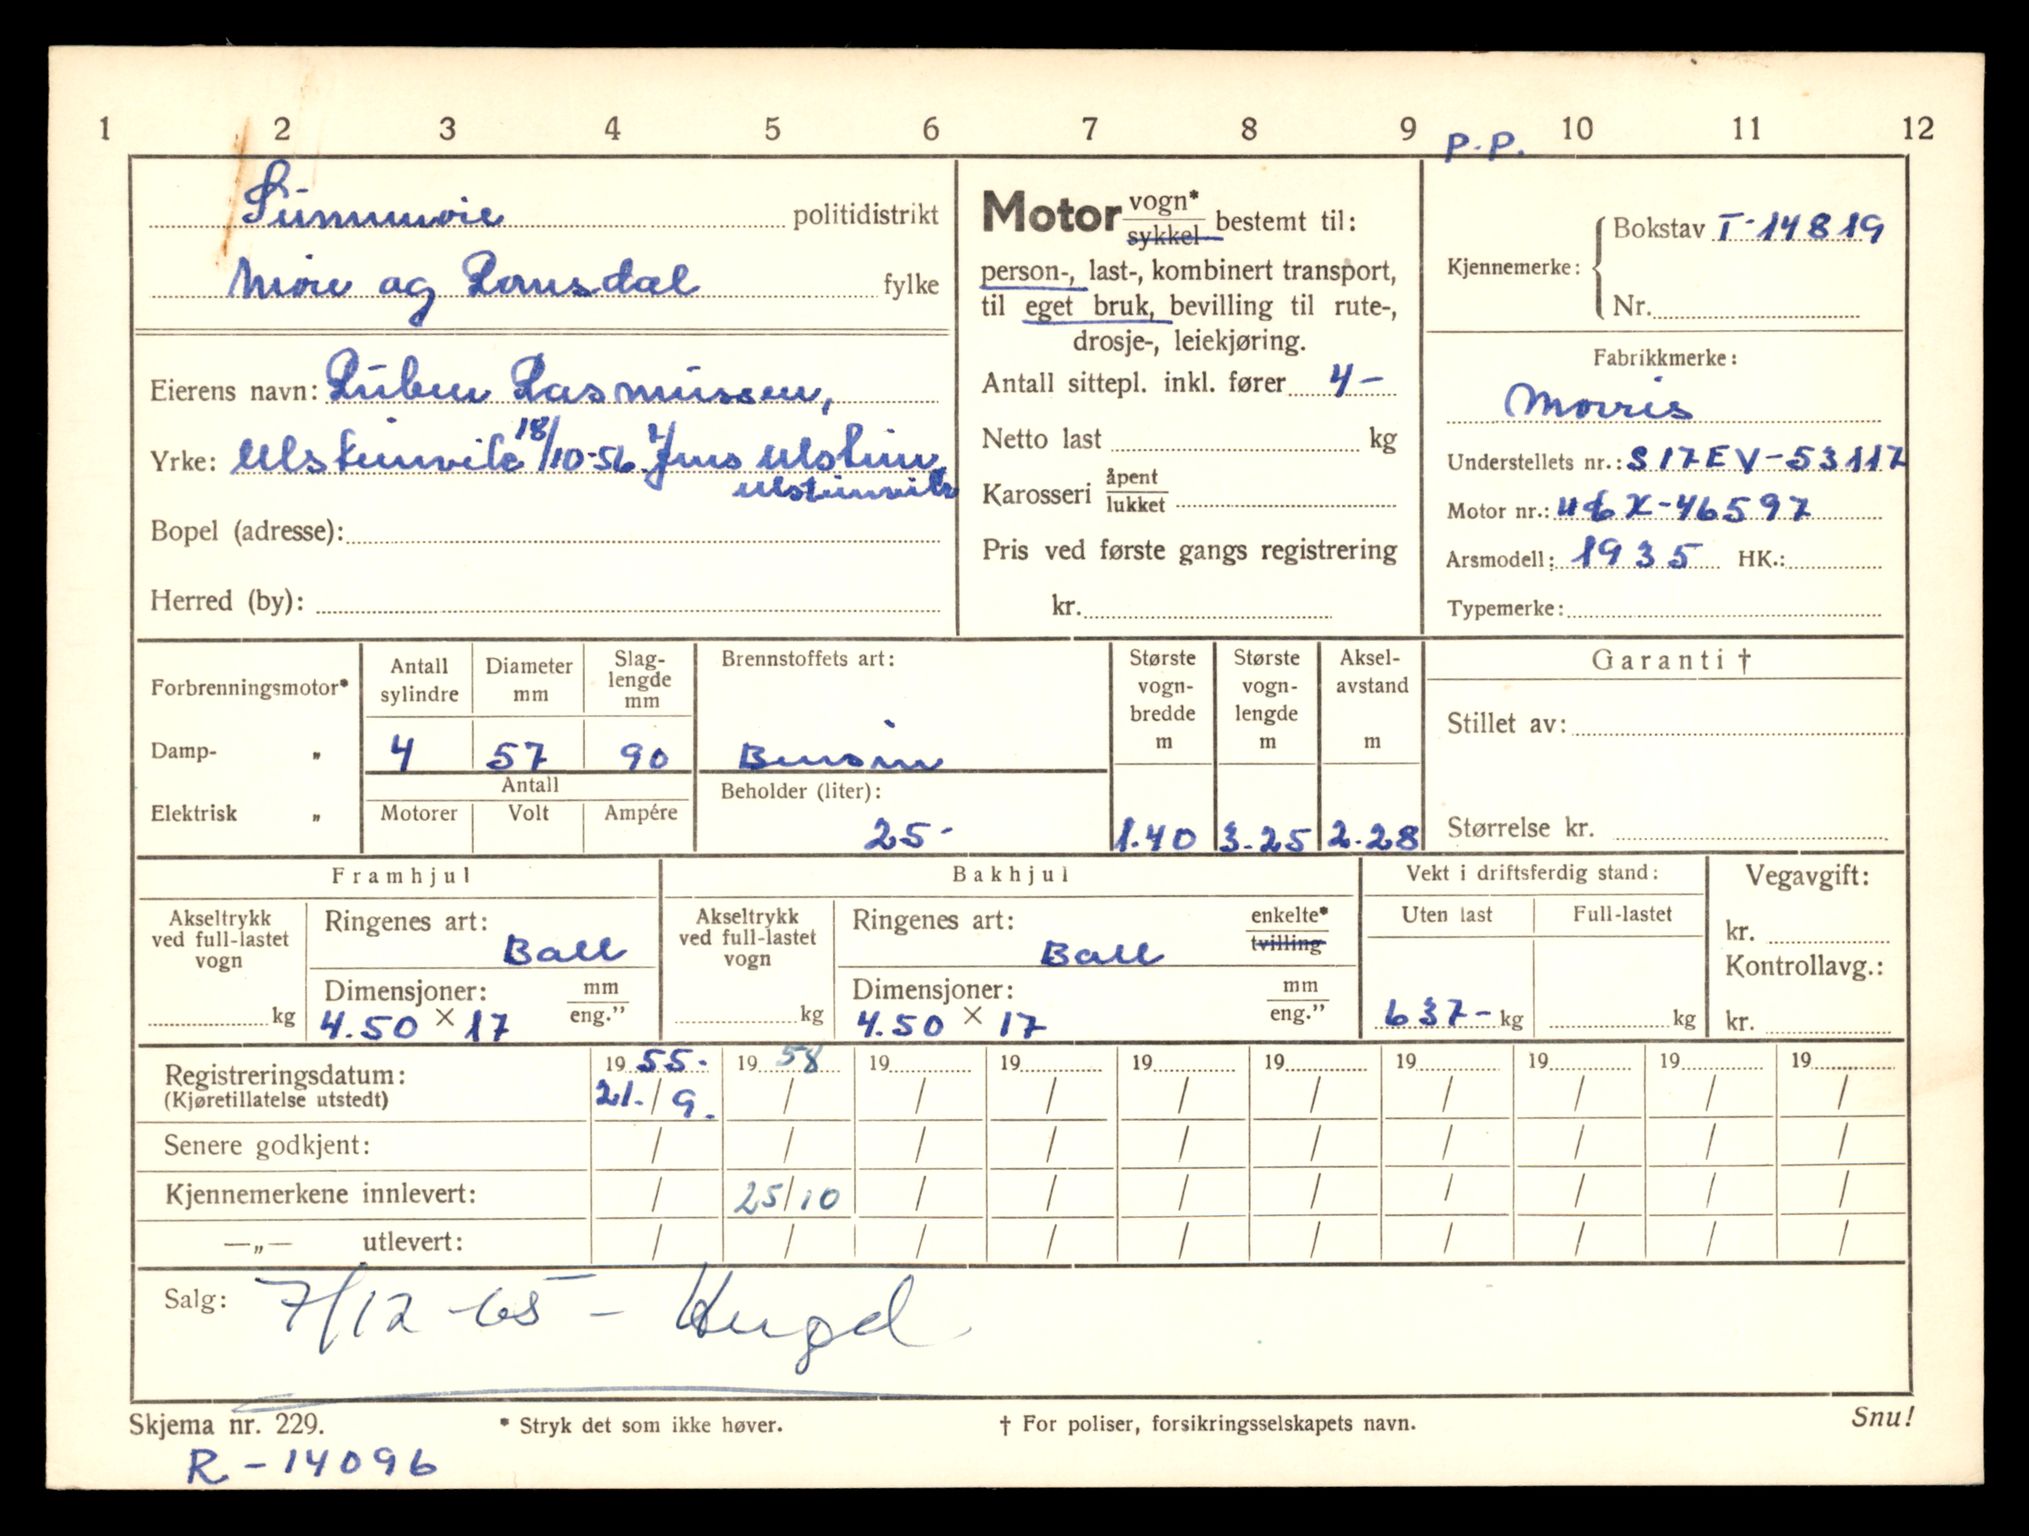 1 2 3 4 5 6 7 8 9 10 11 12
P.P.
Sunnmøre politidistrikt
Møre og Romsdal fylke
Eierens navn: Ruben Rasmussen,
Yrke: Ulsteinvik 18/10-56 Jens Ulstein
Ulsteinvik
Bopel (adresse):
Herred (by):
Motor vogn* sykkel bestemt til:
person-, last-, kombinert transport,
til eget bruk, bevilling til rute-,
drosje-, leiekjøring.
Antall sittepl. inkl. fører 4-
Netto last kg
Karosseri åpent lukket
Pris ved første gangs registrering
kr.
Kjennemerke: Bokstav T-14819
Nr.
Fabrikkmerke:
Morris
Understellets nr.: S17EV-53117
Motor nr.: UGX-46597
Arsmodell: 1935 HK.:
Typemerke:
Forbrenningsmotor*
Damp- „
Elektrisk „
Antall sylindre
Diameter mm
Slag-
lengde
mm
4 57 90
Antall
Motorer Volt Ampére
Brennstoffets art:
Bensin
Beholder (liter):
25-
Største
vogn-
bredde
m
1.40
Største
vogn-
lengde
m
3.25
Aksel-
avstand
m
2.28
Garanti †
Stillet av:
Størrelse kr.
Framhjul
Akseltrykk
ved full-lastet
vogn
kg
Ringenes art:
Ball
Dimensjoner: mm eng."
4.50 × 17
Bakhjul
Akseltrykk
ved full-lastet
vogn
kg
Ringenes art: enkelte* tvilling
Ball
Dimensjoner: mm eng."
4.50 × 17
Vekt i driftsferdig stand:
Uten last Full-lastet
637- kg kg
Vegavgift:
kr.
Kontrollavg.:
kr.
Registreringsdatum: 19 55. 19 58 19 19 19 19 19 19 19 19
(Kjøretillatelse utstedt) 21./9. / / / / / / / / /
Senere godkjent: / / / / / / / / / /
Kjennemerkene innlevert: / 25/10 / / / / / / / /
—„— utlevert: / / / / / / / / / /
Salg: 7/12-65 -
Skjema nr. 229. * Stryk det som ikke høver. † For poliser, forsikringsselskapets navn. Snu!
R-14096